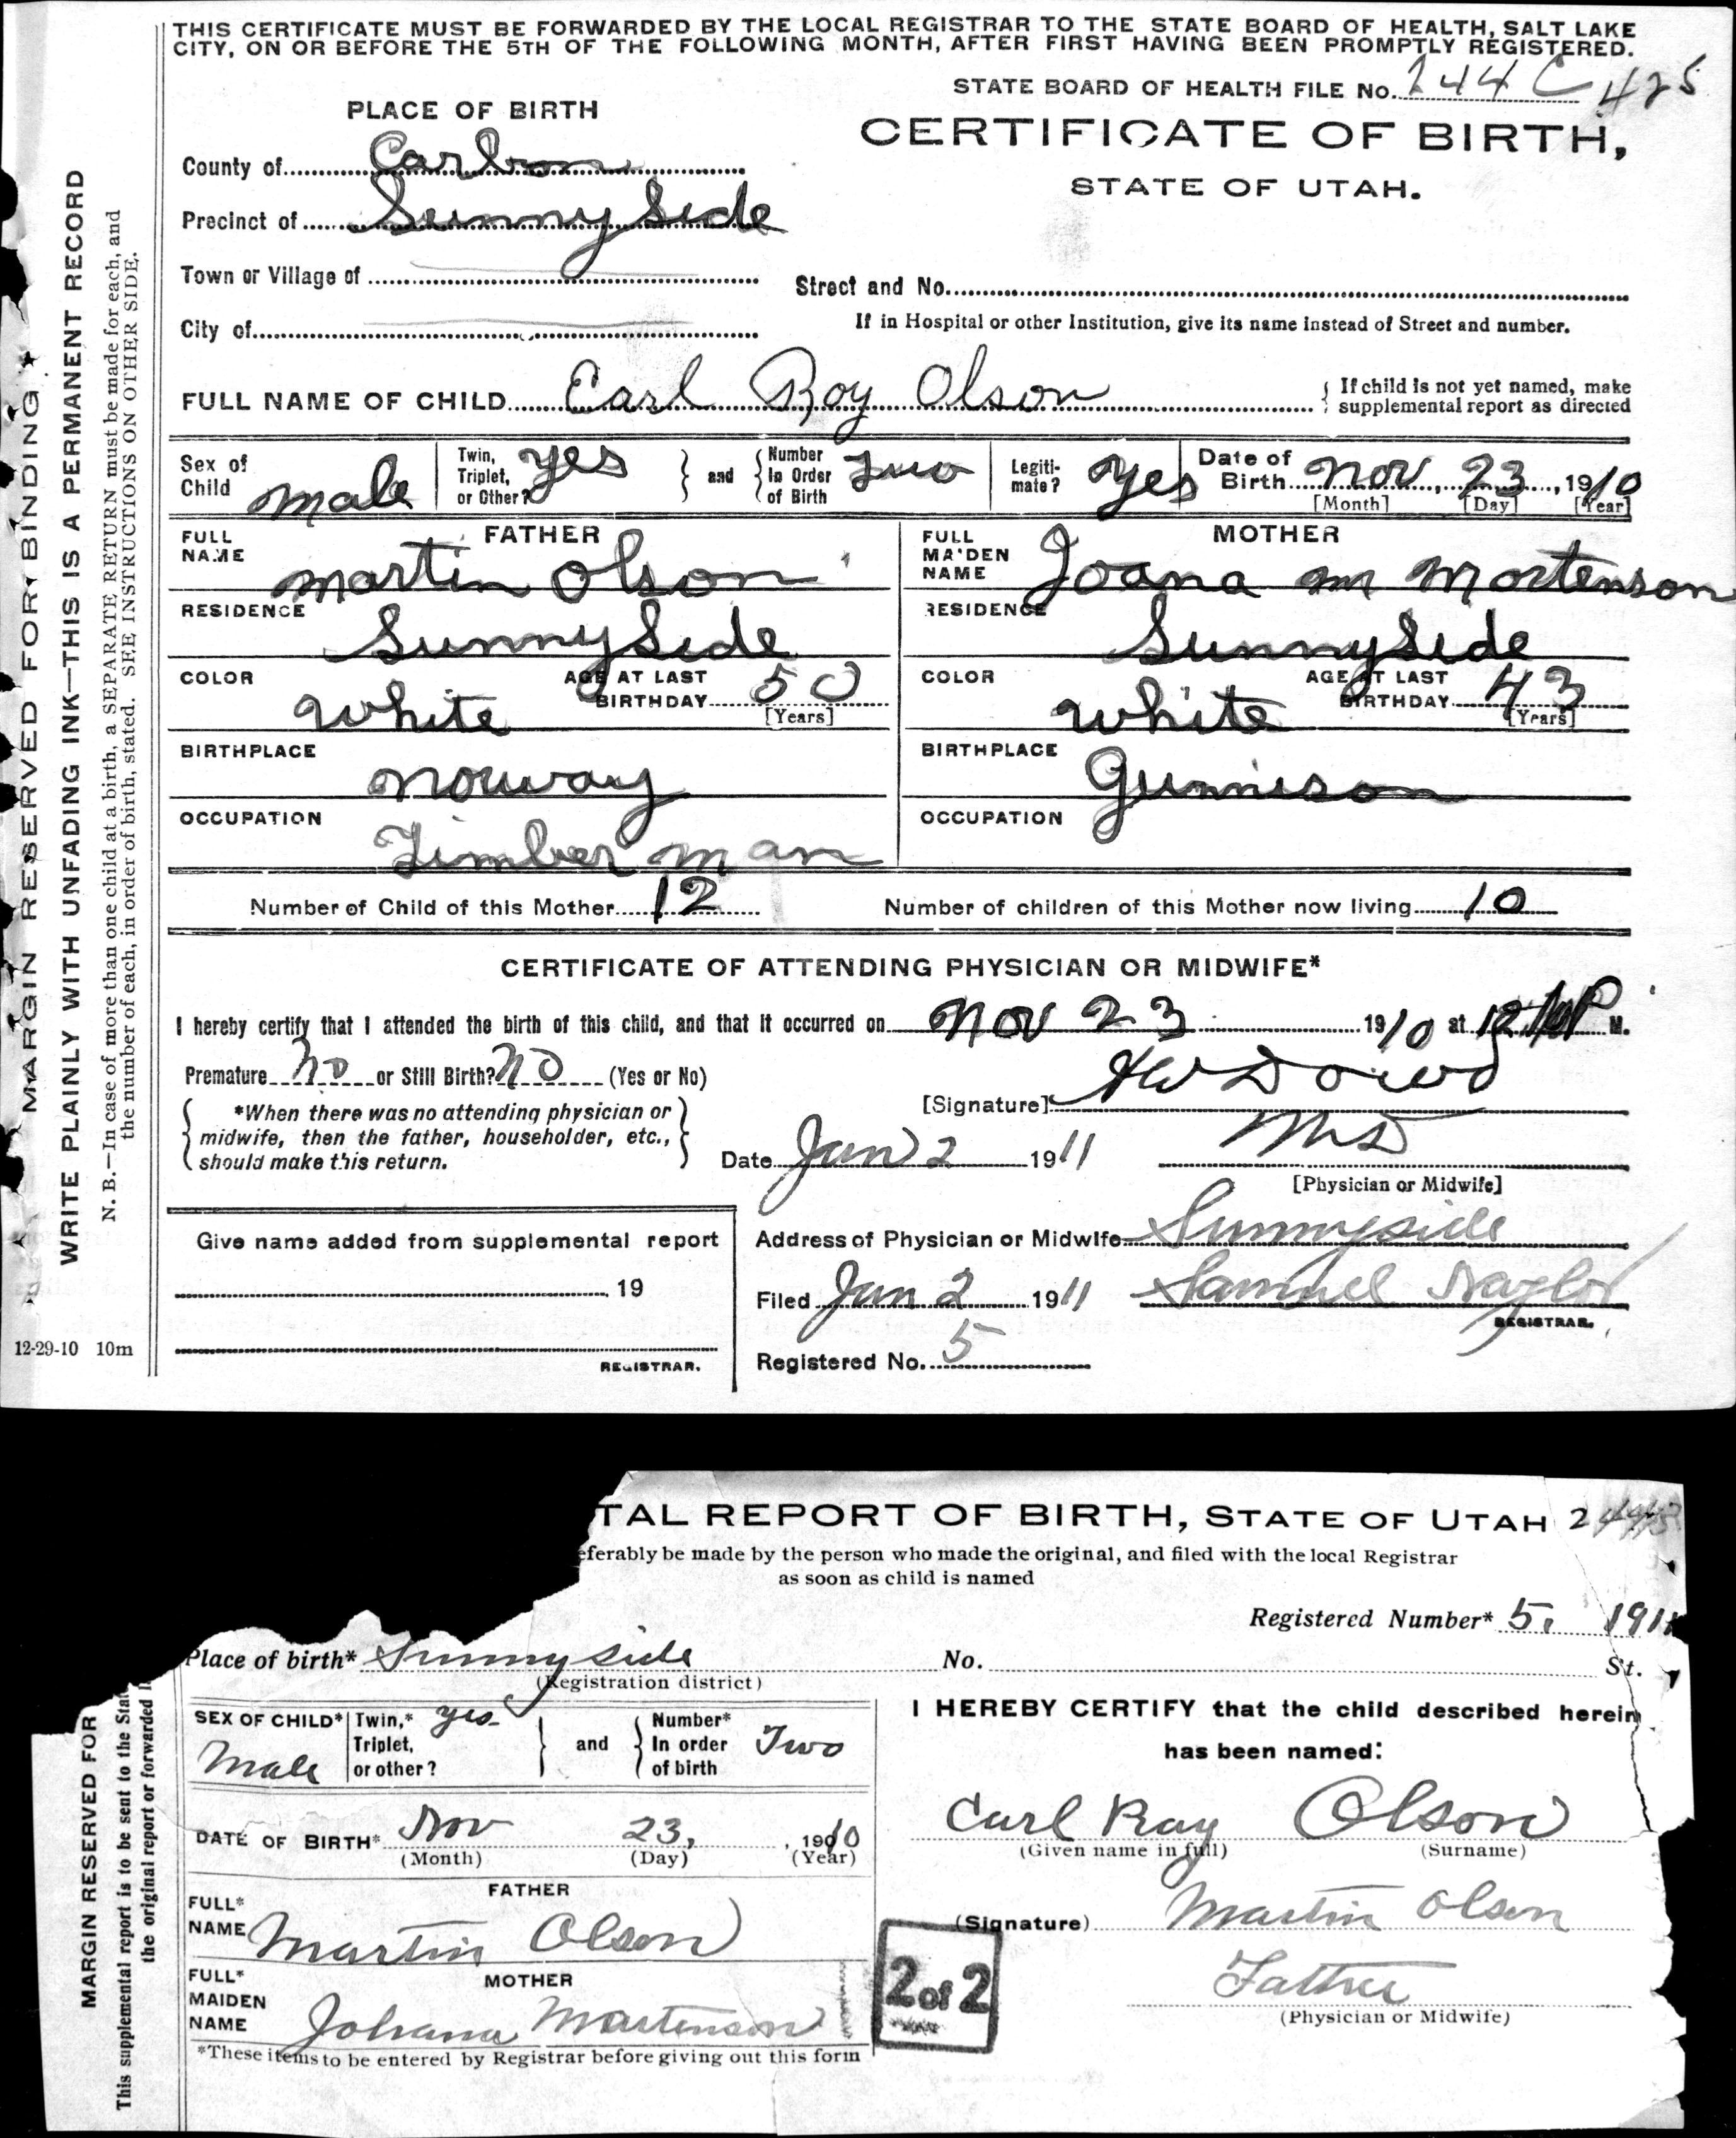 THIS CERTIFICATE MUST BE FORWARDED BY THE LOCAL REGISTRAR TO THE STATE BOARD OF HEALTH, SALT LAKE
CITY, ON OR BEFORE THE 5TH OF THE FOLLOWING MONTH, AFTER FIRST HAVING BEEN PROMPTLY REGISTERED.
STATE BOARD OF HEALTH FILE No. 244 C 425
PLACE OF BIRTH
CERTIFICATE OF BIRTH,
STATE OF UTAH.
County of Carbon
Precinct of Sunny Side
Town or Village of
Street and No.
City of
If in Hospital or other Institution, give its name instead of Street and number.
FULL NAME OF CHILD Earl Roy Olson
{ If child is not yet named, make
supplemental report as directed
Sex of Child male
Twin, Triplet, or Other? yes } and { Number In Order of Birth Two
Legiti-mate? yes
Date of Birth Nov, 23, 1910
[Month] [Day] [Year]
FATHER
FULL NAME Martin Olson
RESIDENCE SunnySide
COLOR White
AGE AT LAST BIRTHDAY 50
[Years]
BIRTHPLACE Norway
OCCUPATION Timber man
MOTHER
FULL MAIDEN NAME Joana m Mortenson
RESIDENCE SunnySide
COLOR White
AGE AT LAST BIRTHDAY 43
[Years]
BIRTHPLACE Gunnison
OCCUPATION
Number of Child of this Mother 12
Number of children of this Mother now living 10
CERTIFICATE OF ATTENDING PHYSICIAN OR MIDWIFE*
I hereby certify that I attended the birth of this child, and that it occurred on Nov 23 1910 at 12 P M.
Premature No or Still Birth? No (Yes or No)
{ *When there was no attending physician or
midwife, then the father, householder, etc.,
should make this return. }
[Signature] H W Dowd
Date Jan 2 1911
M D
[Physician or Midwife]
Give name added from supplemental report
19
REGISTRAR.
Address of Physician or Midwife Sunnyside
Filed Jan 2 1911 Samuel Naylor
REGISTRAR.
Registered No. 5
MARGIN RESERVED FOR BINDING
WRITE PLAINLY WITH UNFADING INK—THIS IS A PERMANENT RECORD
N. B.—In case of more than one child at a birth, a SEPARATE RETURN must be made for each, and
the number of each, in order of birth, stated. SEE INSTRUCTIONS ON OTHER SIDE.
12-29-10 10m
TAL REPORT OF BIRTH, STATE OF UTAH
eferably be made by the person who made the original, and filed with the local Registrar
as soon as child is named
Registered Number* 5, 1911
Place of birth* Sunnyside
(Registration district)
No. St.
SEX OF CHILD* Male
Twin,* Triplet, or other? yes } and { Number* In order of birth Two
DATE OF BIRTH* Nov 23, 1910
(Month) (Day) (Year)
FATHER
FULL* NAME Martin Olson
MOTHER
FULL* MAIDEN NAME Johana Martenson
*These items to be entered by Registrar before giving out this form
I HEREBY CERTIFY that the child described herein
has been named:
Carl Ray Olson
(Given name in full) (Surname)
(Signature) Martin Olson
Father
(Physician or Midwife)
2 of 2
MARGIN RESERVED FOR
This supplemental report is to be sent to the Stat
the original report or forwarded